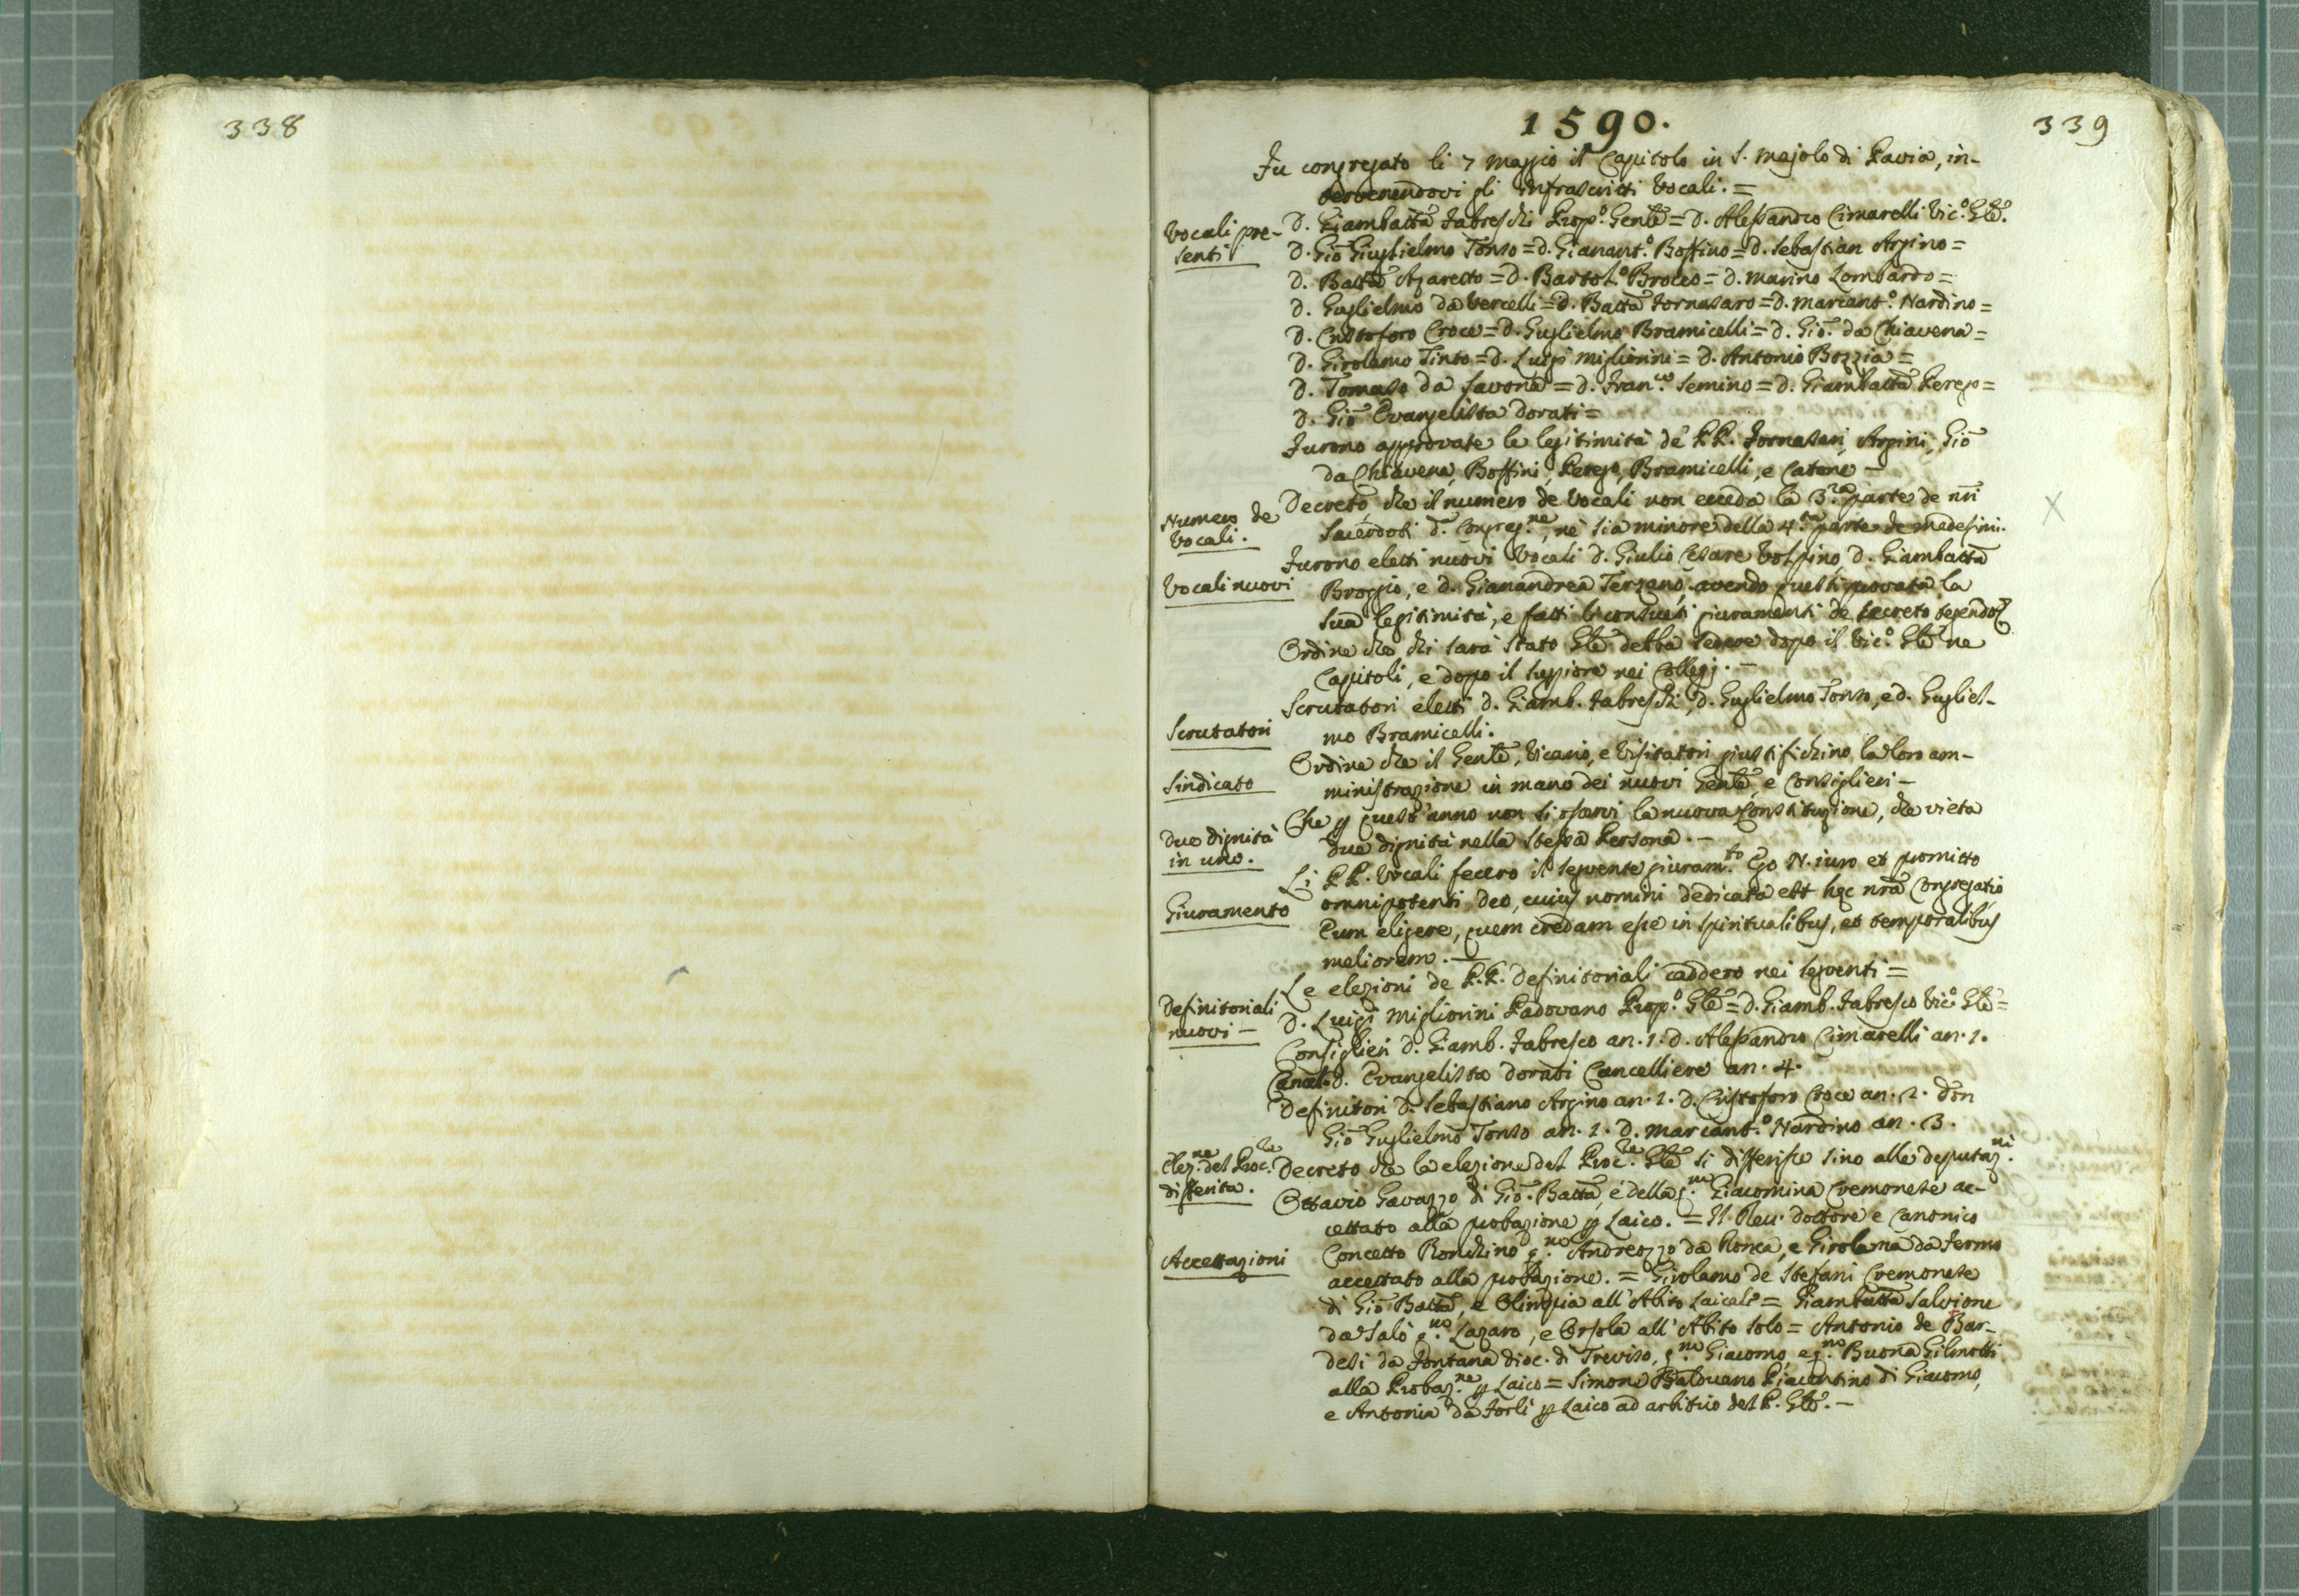 338
1590.
339
Fu congregato li 7 Maggio il Capitolo in S. Majolo di Pavia, in-
tervenendovi gli infrascritti Vocali. =
Vocali pre-
senti
D. Giambatta Fabreschi Prep.o Genle = D. Alessandro Cimarelli Vic.o Gle.
D. Gio Guglielmo Tonso = D. Gianant.o Boffino = D. Sebastian Arpino =
D. Batta Assareto = D. Bartol.o Brocco = D. Marino Lombardo =
D. Guglielmo da Vercelli = D. Batta Fornasaro = D. Marcant.o Nardino =
D. Cristoforo Croce = D. Guglielmo Bramicelli = D. Gio. da Chiavena =
D. Girolamo Tinto = D. Luigi Migliorini = D. Antonio Bozzia =
D. Tomaso da Savona = D. Fran.co Semino = D. Giambatta Perego =
D. Gio Evangelista Dorati =
Furono approvate le legitimità de' PP. Fornasari, Arpini, Gio
da Chiavena, Boffini, Perego, Bramicelli, e Catone —
Numero de
Vocali.
Decreto, che il numero de Vocali non ecceda la 3.za parte de nri
Sacerdoti d. Congreg.ne, nè sia minore della 4.ta parte de medesimi.
X
Vocali nuovi
Furono eletti nuovi Vocali D. Giulio Cesare Volpino, D. Giambatta
Broggio, e D. Gianandrea Terzano, avendo questi provata la
sua legitimità, e fatti li consueti giuramenti de secreto tegendo &
Ordine che chi sarà stato Gle debba sedere dopo il Vic.o Gle ne
Capitoli, e dopo il Suppiore nei Collegj. —
Scrutatori
Scrutatori eletti D. Giamb. Fabreschi, D. Guglielmo Tonso, e D. Gugliel-
mo Bramicelli.
Sindicato
Ordine che il Genle, Vicario, e Visitatori giustifichino la loro am-
ministrazione in mano dei nuovi Genle, e Consiglieri —
Due dignità
in uno.
Che p quest'anno non si osservi la nuova Constituzione, che vieta
due dignità nella stessa Persona. —
Giuramento
Li PP. Vocali fecero il seguente giuram.to Ego N. iuro et promitto
omnipotenti Deo, cuius nomini dedicata est hec nra Congregatio
Eum eligere, quem credam esse in Spiritualibus, et temporalibus
meliorem. —
Definitoriali
nuovi —
Le elezioni de P.P. Definitoriali caddero nei seguenti =
D. Luigi Migliorini Padovano Prep.o Gle = D. Giamb. Fabresco Vic.o Gle =
Consiglieri D. Giamb. Fabresco an. 1. D. Alessandro Cimarelli an. 1.
Cancel. D. Evangelista Dorati Cancelliere an. 4.
Definitori D. Sebastiano Arpino an. 2. D. Cristoforo Croce an. 2. Don
Gio Guglielmo Tonso an. 1. D. Marcant.o Nardino an. 3.
Elez.ne del Proc.re
differita.
Decreto che la elezione del Proc.re Gle si differisce sino alle deputaz.ni
Accettazioni
Ottavio Gavazzo di Gio. Batta, e della q.m Giacomina Cremonese ac-
cettato alla probazione p Laico. = Il Rev. Dottore e Canonico
Concetto Ronchino q.m Andreozzo da Ronca, e Girolama da Fermo
accettato alla probazione. = Girolamo de Stefani Cremonese
di Gio Batta, e Olimpia all'Abito Laicale = Giambatta Salvione
da Salò q.m Lazaro, e Orsola all'Abito solo = Antonio de Bar-
desi da Fontana dioc. di Treviso, q.m Giacomo, e q.m Buona Gilmotti
alla Probaz.ne p Laico = Simone Balduano Piacentino di Giacomo,
e Antonia da Forlì p Laico ad arbitrio del P. Gle. —